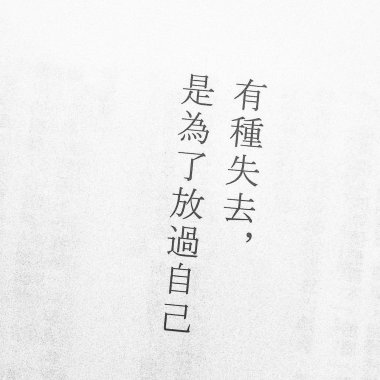 有種失去，
是為了放過自己